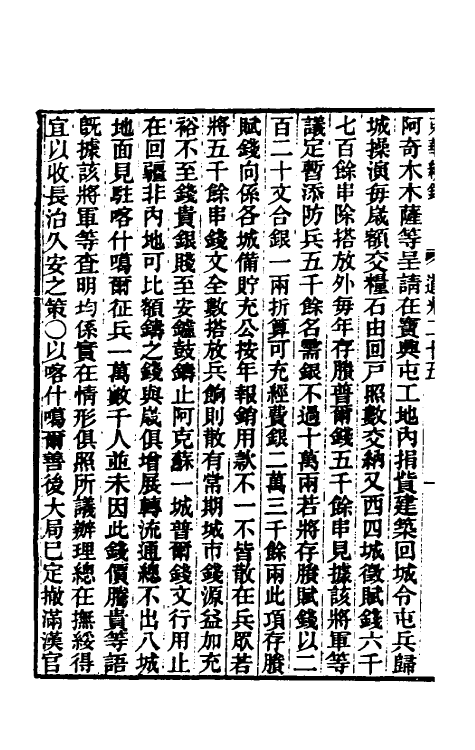 阿奇木木薩等呈請在寶興屯工地內捐貲建築回城令屯兵歸
城操演每歲額交糧石由回戶照數交納又西四城徵賦錢六千
七百餘串除搭放外每年存賸普爾錢五千餘串見據該將軍等
議定暫添防兵五千餘名需銀不過十萬兩若將存賸賦錢以二
百二十文合銀一兩折算可充經費銀二萬三千餘兩此項存賸
賦錢向係各城備貯充公按年報銷用款不一不皆散在兵眾若
將五千餘串錢文全數搭放兵餉則散有常期城市錢源益加充
裕不至錢貴銀賤至安鑪鼓鑄止阿克蘇一城普爾錢文行用止
在回疆非內地可比額鑄之錢與歲俱增展轉流通總不出八城
地面見駐喀什噶爾征兵一萬數千人並未因此錢價騰貴等語
旣據該將軍等查明均係實在情形俱照所議辦理總在撫綏得
宜以收長治久安之策○以喀什噶爾善後大局已定撤滿漢官